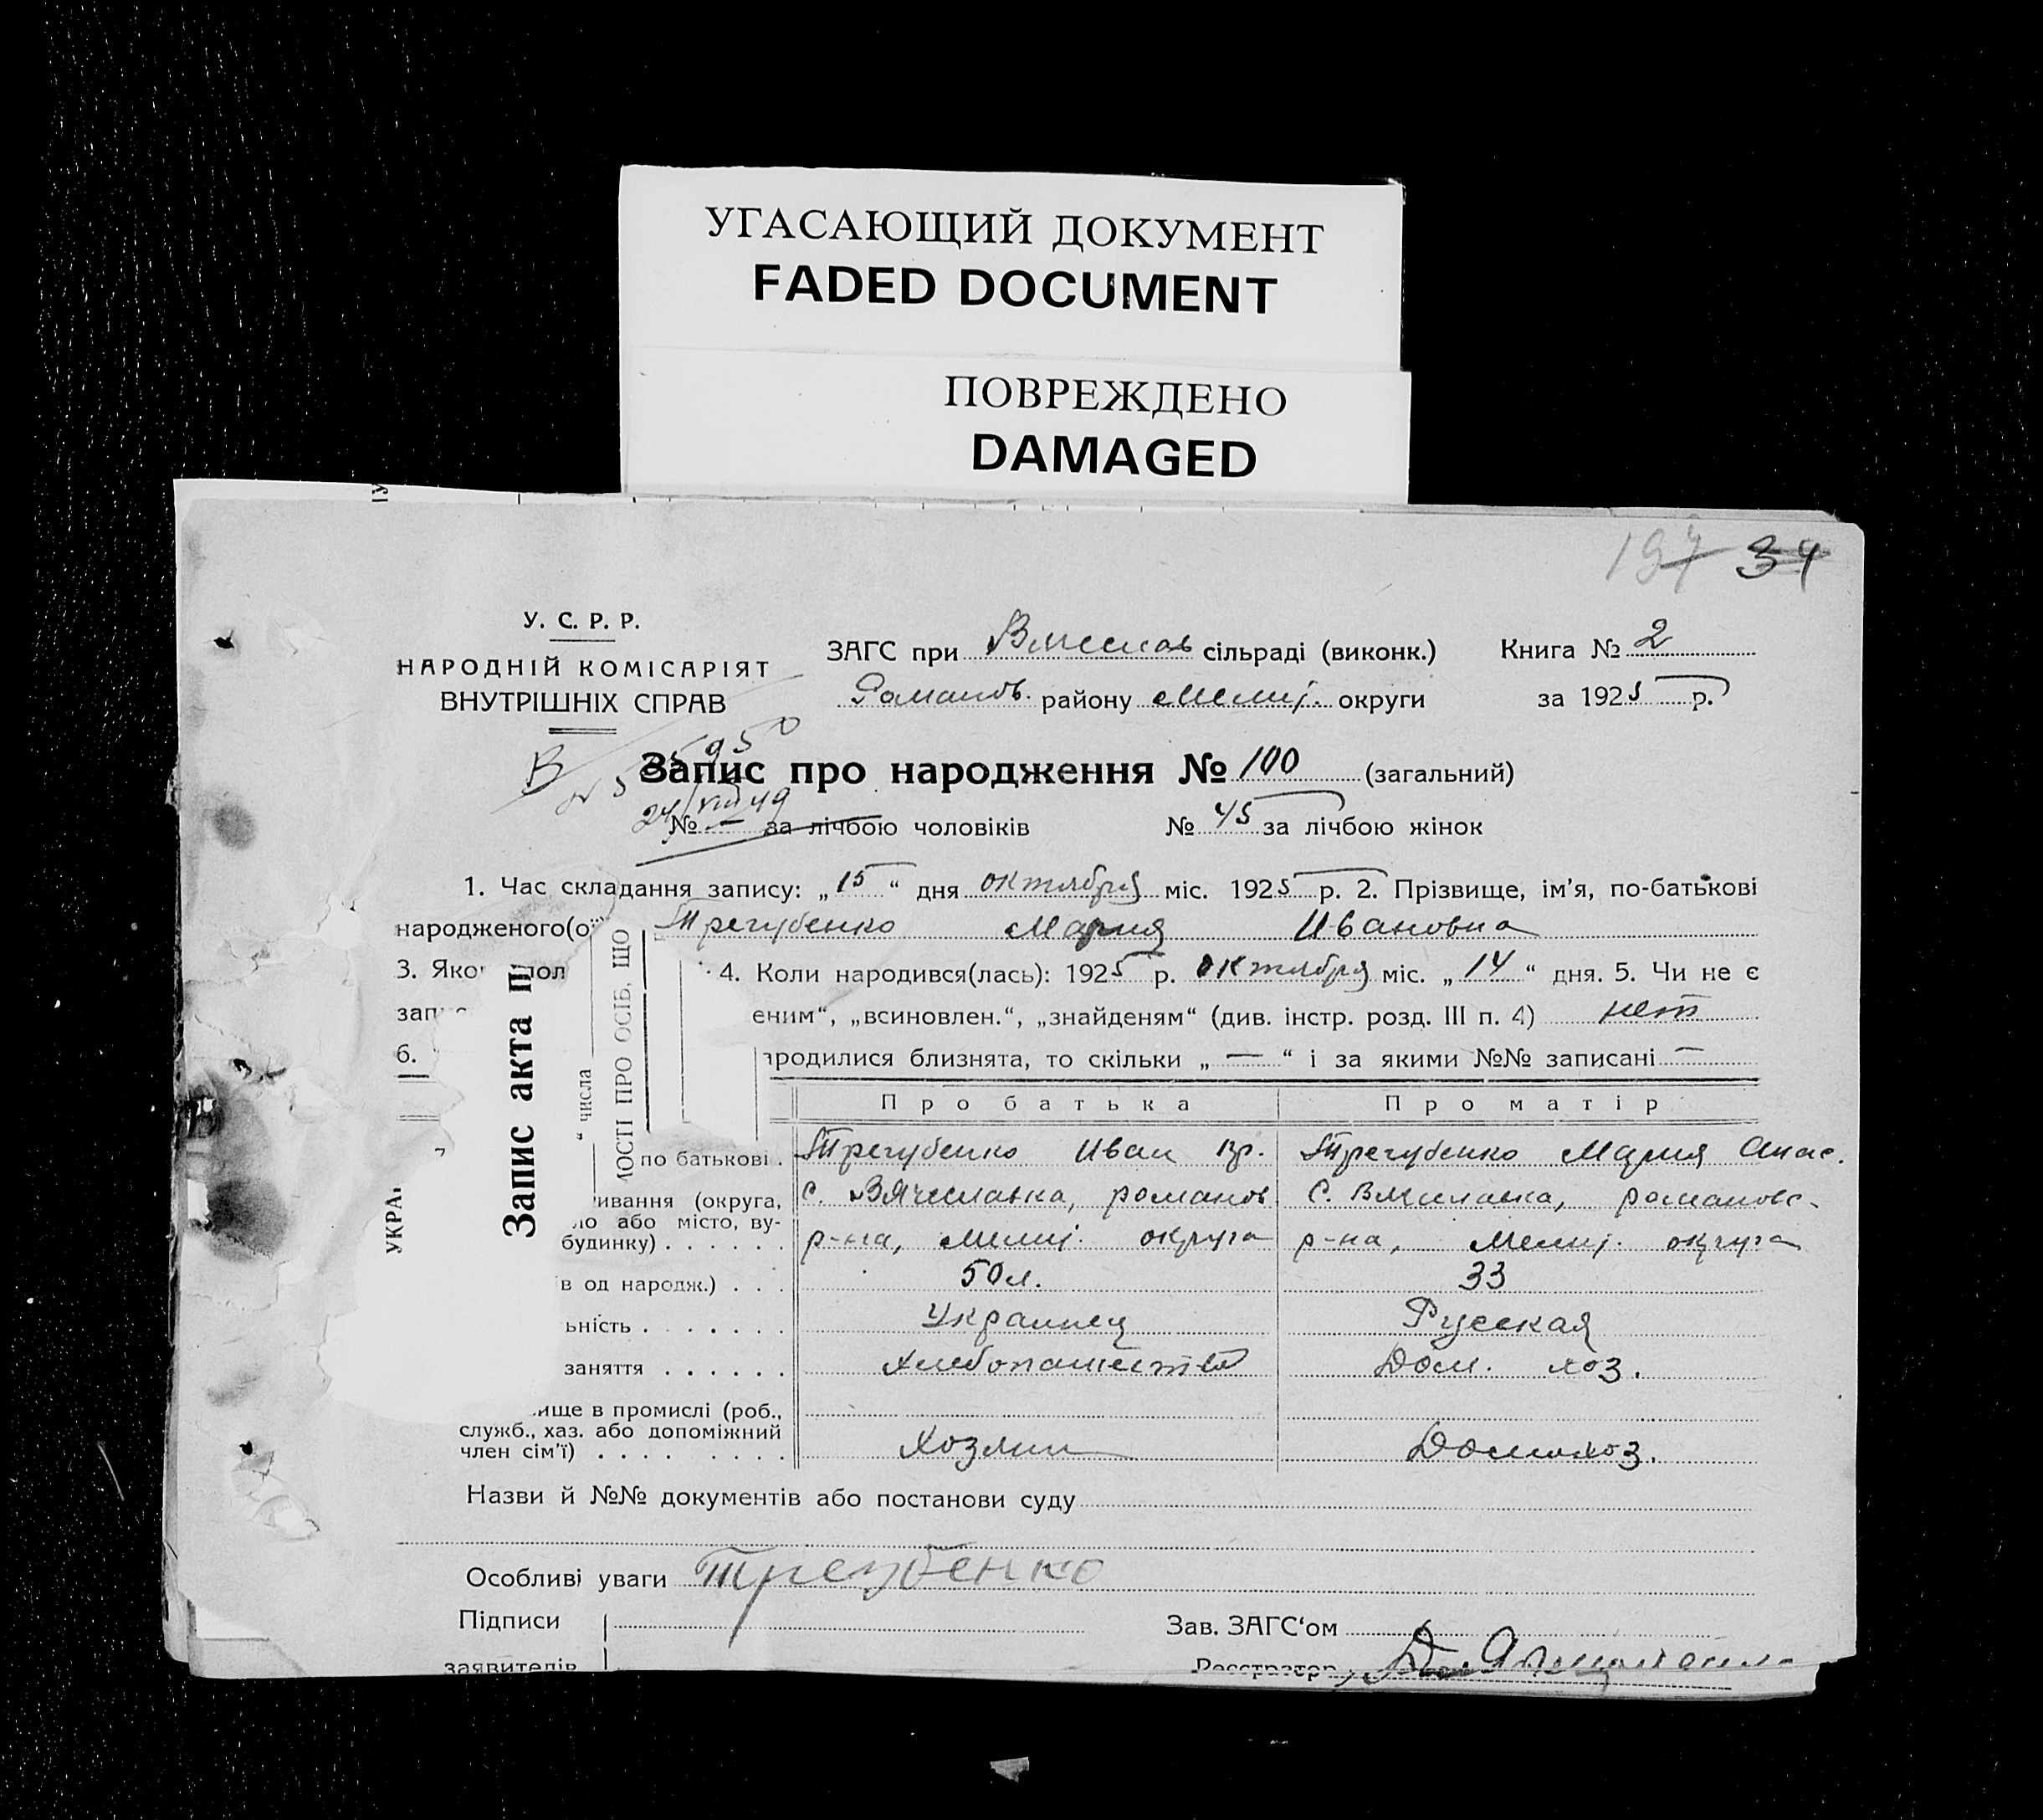 УГАСАЮЩИЙ ДОКУМЕНТ
FADED DOCUMENT
ПОВРЕЖДЕНО
DAMAGED
197 34
У. С. Р. Р.
НАРОДНІЙ КОМІСАРІЯТ
ВНУТРІШНІХ СПРАВ
ЗАГС при Вячеслав сільраді (виконк.) Книга № 2
Романов. району Мелит. округи за 1925 р.
В
Запис про народження № 100 (загальний)
24/VIII 49
№ — за лічбою чоловіків № 45 за лічбою жінок
1. Час складання запису: „15“ дня октября міс. 1925 р. 2. Прізвище, ім’я, по-батькові
народженого(ої Трегубенко Мария Ивановна
3. Яко пол 4. Коли народився(лась): 1925 р. октября міс. „14“ дня. 5. Чи не є
зап еним“, „всиновлен.“, „знайденям“ (див. інстр. розд. III п. 4) нет
6. ародилися близнята, то скільки „—“ і за якими №№ записані —
Запис акта П
“ числа
МОСТІ ПРО ОСІБ, ЩО
УКРА
Про батька Про матір
по батькові . Трегубенко Иван Гр. Трегубенко Мария Анас.
ивання (округа, С. Вячеславка, романов С. Вячеславка, романовс-
ло або місто, ву-
будинку) . . . . . . р-на, Мелит. округа р-на, Мелит. округа
в од народж.) . . . 50 л. 33
ьність . . . . . . . Украинец Русская
заняття . . . . . . Хлебопашество Дом. хоз.
ище в промислі (роб.,
служб., хаз. або допоміжний
член сім’ї) . . . . . . . . Хозяин Домохоз.
Назви й №№ документів або постанови суду
Особливі уваги Трегубенко
Підписи Зав. ЗАГС‘ом
заявителів Реєстратор